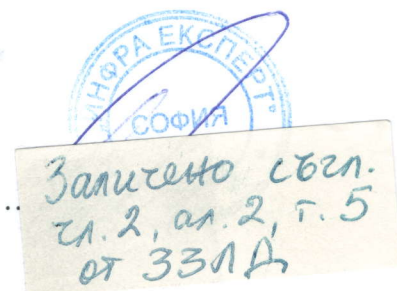 "ИНФРА ЕКСПЕРТ"
СОФИЯ
Заличено съгл.
чл. 2, ал. 2, т. 5
от ЗЗЛД